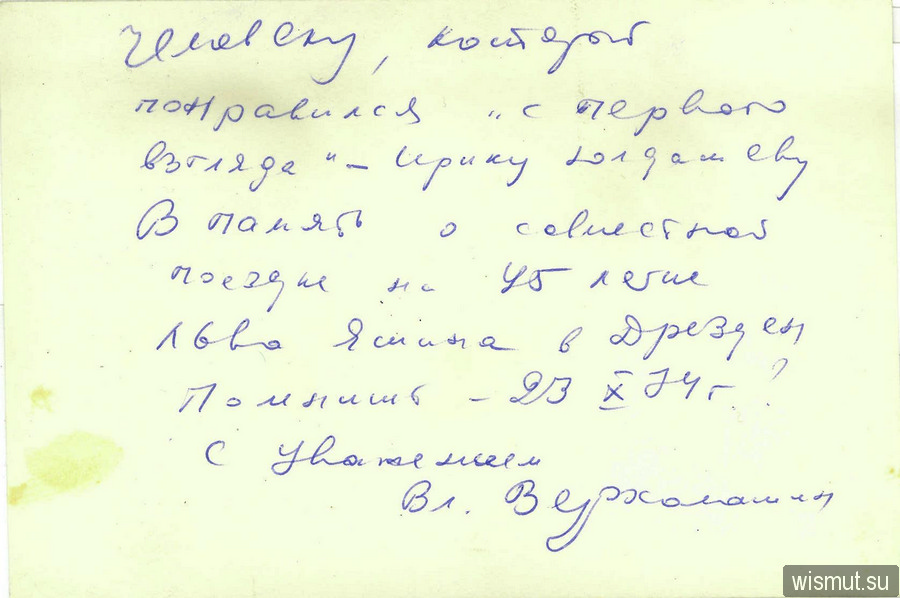 Человеку, который
понравился "с первого
взгляда" – Ирику Юлдашеву
В память о совместной
поездке на 45 летие
Льва Яшина в Дрезден
Помнишь – 23 X 74 г?
С уважением
Вл.
wismut.su